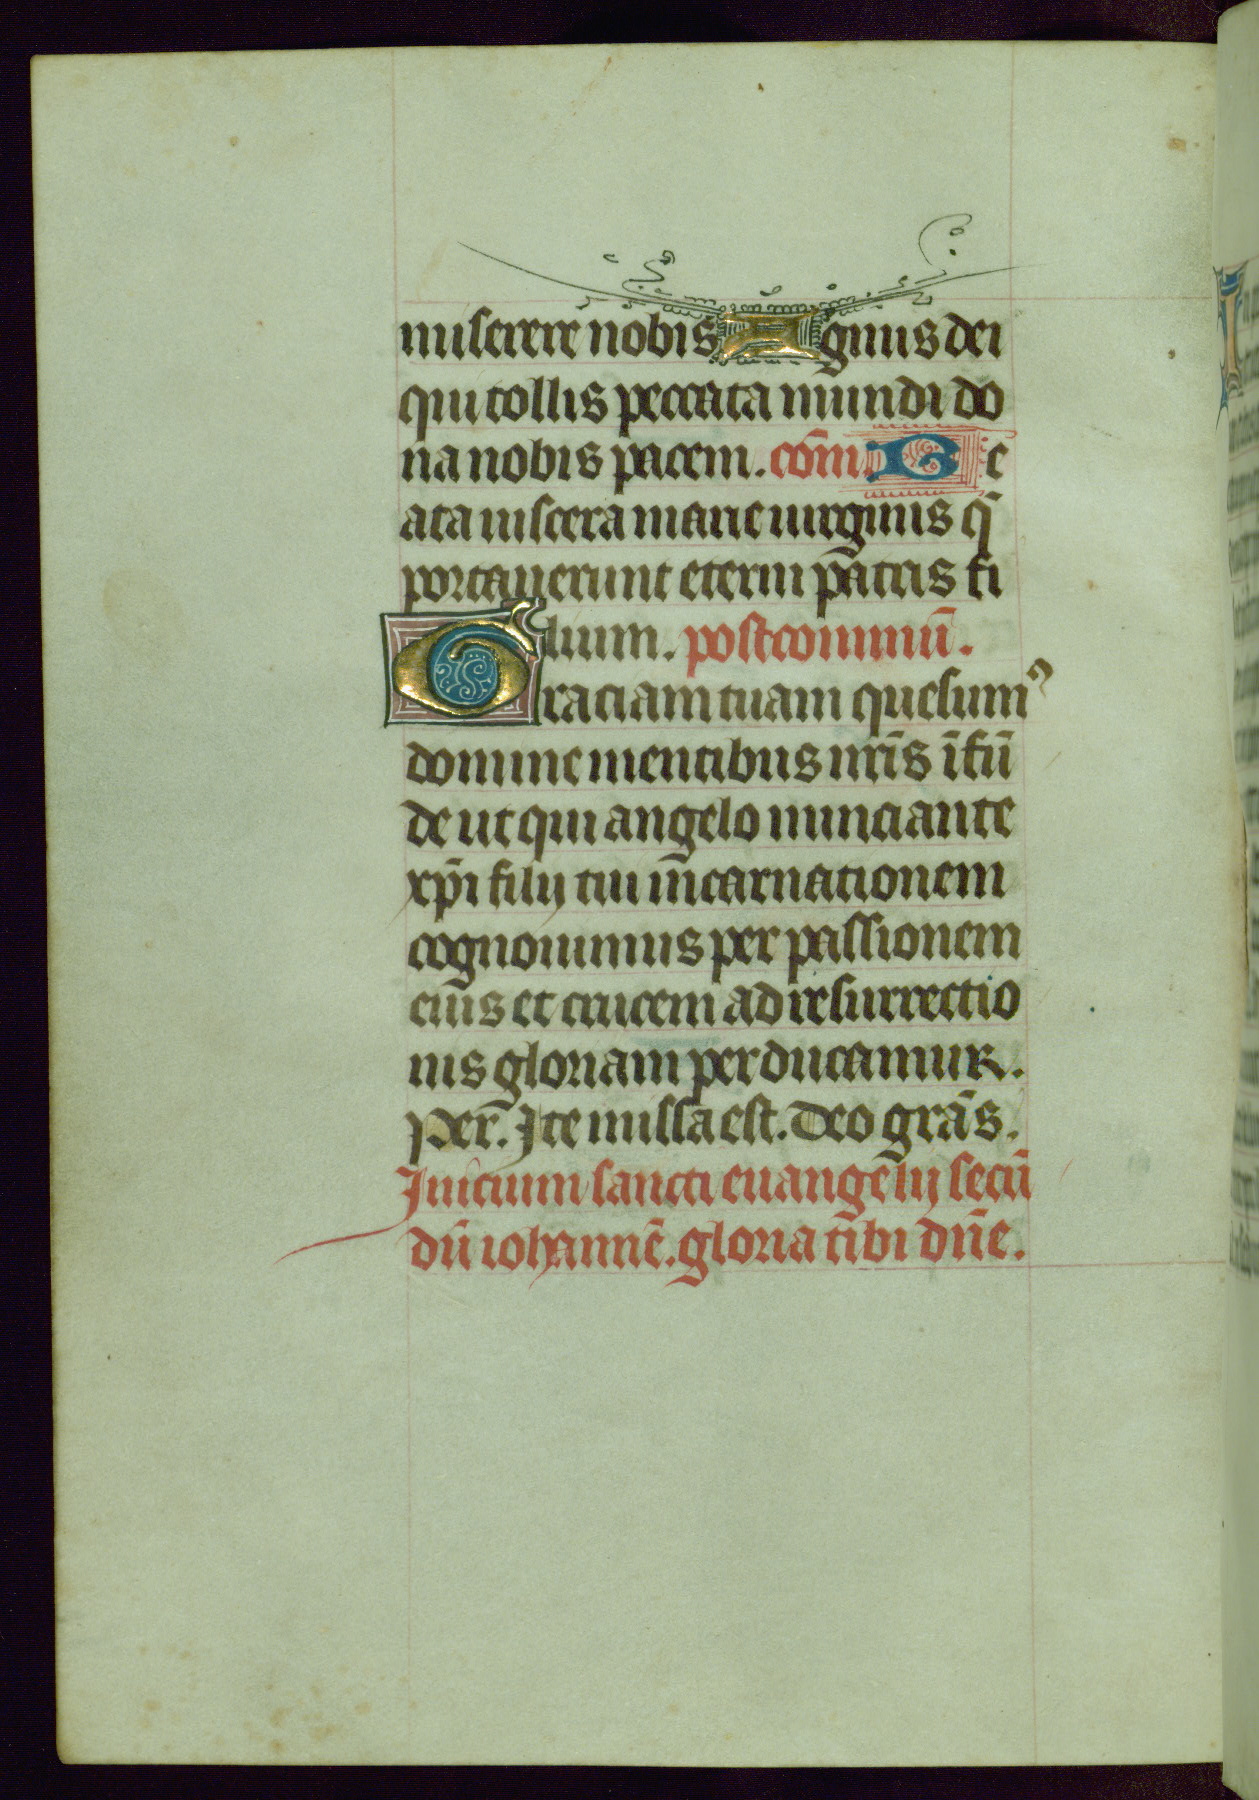 miserere nobis Agnus dei
qui tollis peccata mundi do
na nobis pacem. cōm. Be
ata uiscera marie uirginis q̄
portauerunt eterni patris fi
lium. postcommuū.
Graciam tuam quesumꝰ
domine mentibus nr̄is īfū
de ut qui angelo nunciante
xp̄i filij tui incarnationem
cognouimus per passionem
eius et crucem ad resurrectio
nis gloriam perducamur.
Per̄. Ite missa est. Deo grās.
Inicium sancti euangelij secū
dū iohannē. gloria tibi dn̄e.